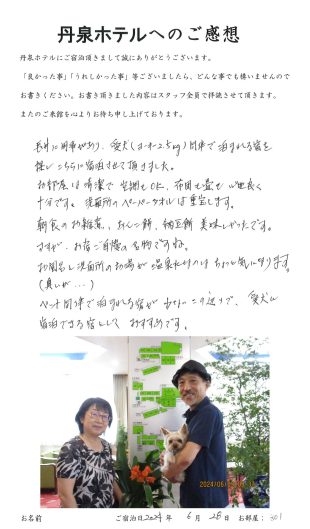 丹泉ホテルへのご感想
丹泉ホテルにご宿泊頂きまして誠にありがとうございます。
「良かった事」「うれしかった事」等ございましたら、どんな事でも構いませんので
お書きください。お書き頂きました内容はスタッフ全員で拝読させて頂きます。
またのご来館を心よりお待ち申し上げております。
用事があり、愛犬(ヨーキー2.5kg)同伴で泊まれる宿を
探しこちらに宿泊させて頂きました。
お部屋は清潔で空調もOK、布団も畳も心地良く
十分です。洗面所のペーパータオルは重宝します。
朝食のお雑煮、あんこ餅、納豆餅美味しかったです。
さすが、お宿ご自慢の名物ですね。
お風呂と洗面所の が温泉 はちょっと気になります。
(臭いが...)
ペット同伴で泊まれる宿が この辺りで、愛犬と
宿泊できる宿として おすすめです。
2024/06/
お名前
ご宿泊日2024年 6月 28日 お部屋: 301